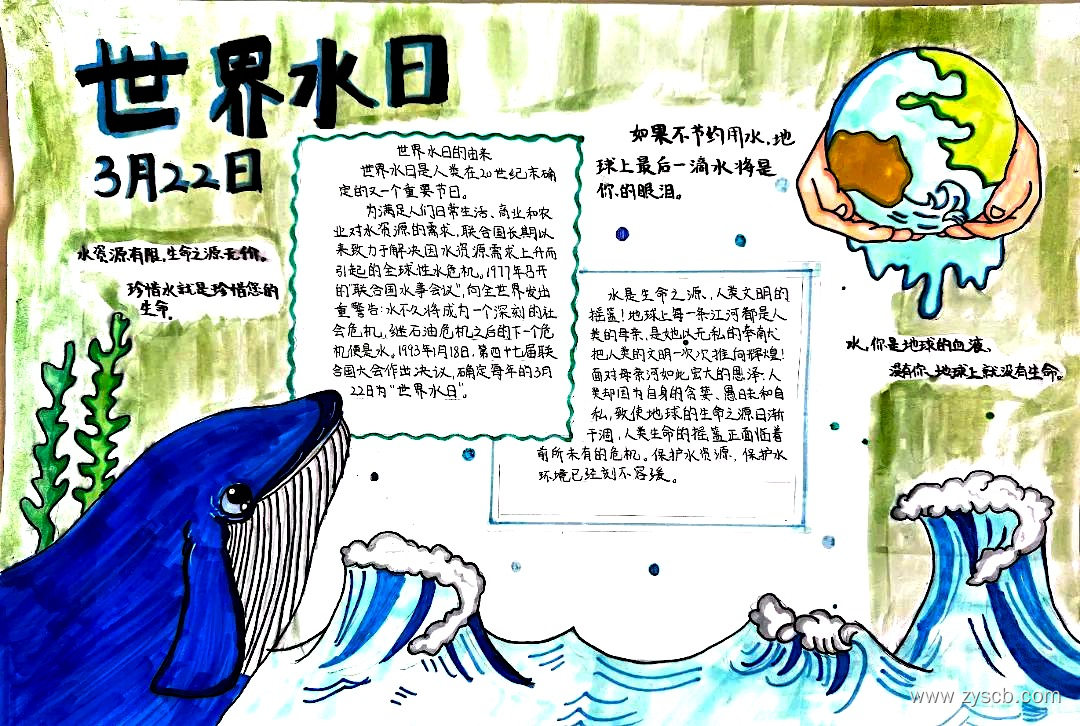 世界水日
3月22日
水资源有限,生命之源无价。
珍惜水就是珍惜您的
生命.
世界水日的由来
世界水日是人类在20世纪末确
定的又一个重要节日。
为满足人们日常生活、商业和农
业对水资源的需求,联合国长期以
来致力于解决因水资源需求上升而
引起的全球性水危机。1977年召开
的"联合国水事会议",向全世界发出
重警告:水不久将成为一个深刻的社
会危机,继石油危机之后的下一个危
机便是水。1993年1月18日,第四十七届联
合国大会作出决议,确定每年的3月
22日为"世界水日"。
如果不节约用水,地
球上最后一滴水将是
你的眼泪。
水是生命之源、人类文明的
摇篮!地球上每一条江河都是人
类的母亲,是她以无私的奉献
把人类的文明一次次推向辉煌!
面对母亲河如此宏大的恩泽,人
类却因为自身的贪婪、愚昧和自
私,致使地球的生命之源日渐
干涸,人类生命的摇篮正面临着
前所未有的危机。保护水资源、保护水
环境已经刻不容缓。
水,你是地球的血液,
没有你、地球上就没有生命。
www.zyscb.com